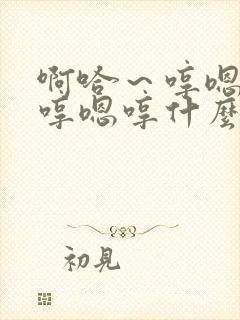 啊哈～哼嗯
哼嗯哼什麼
初見